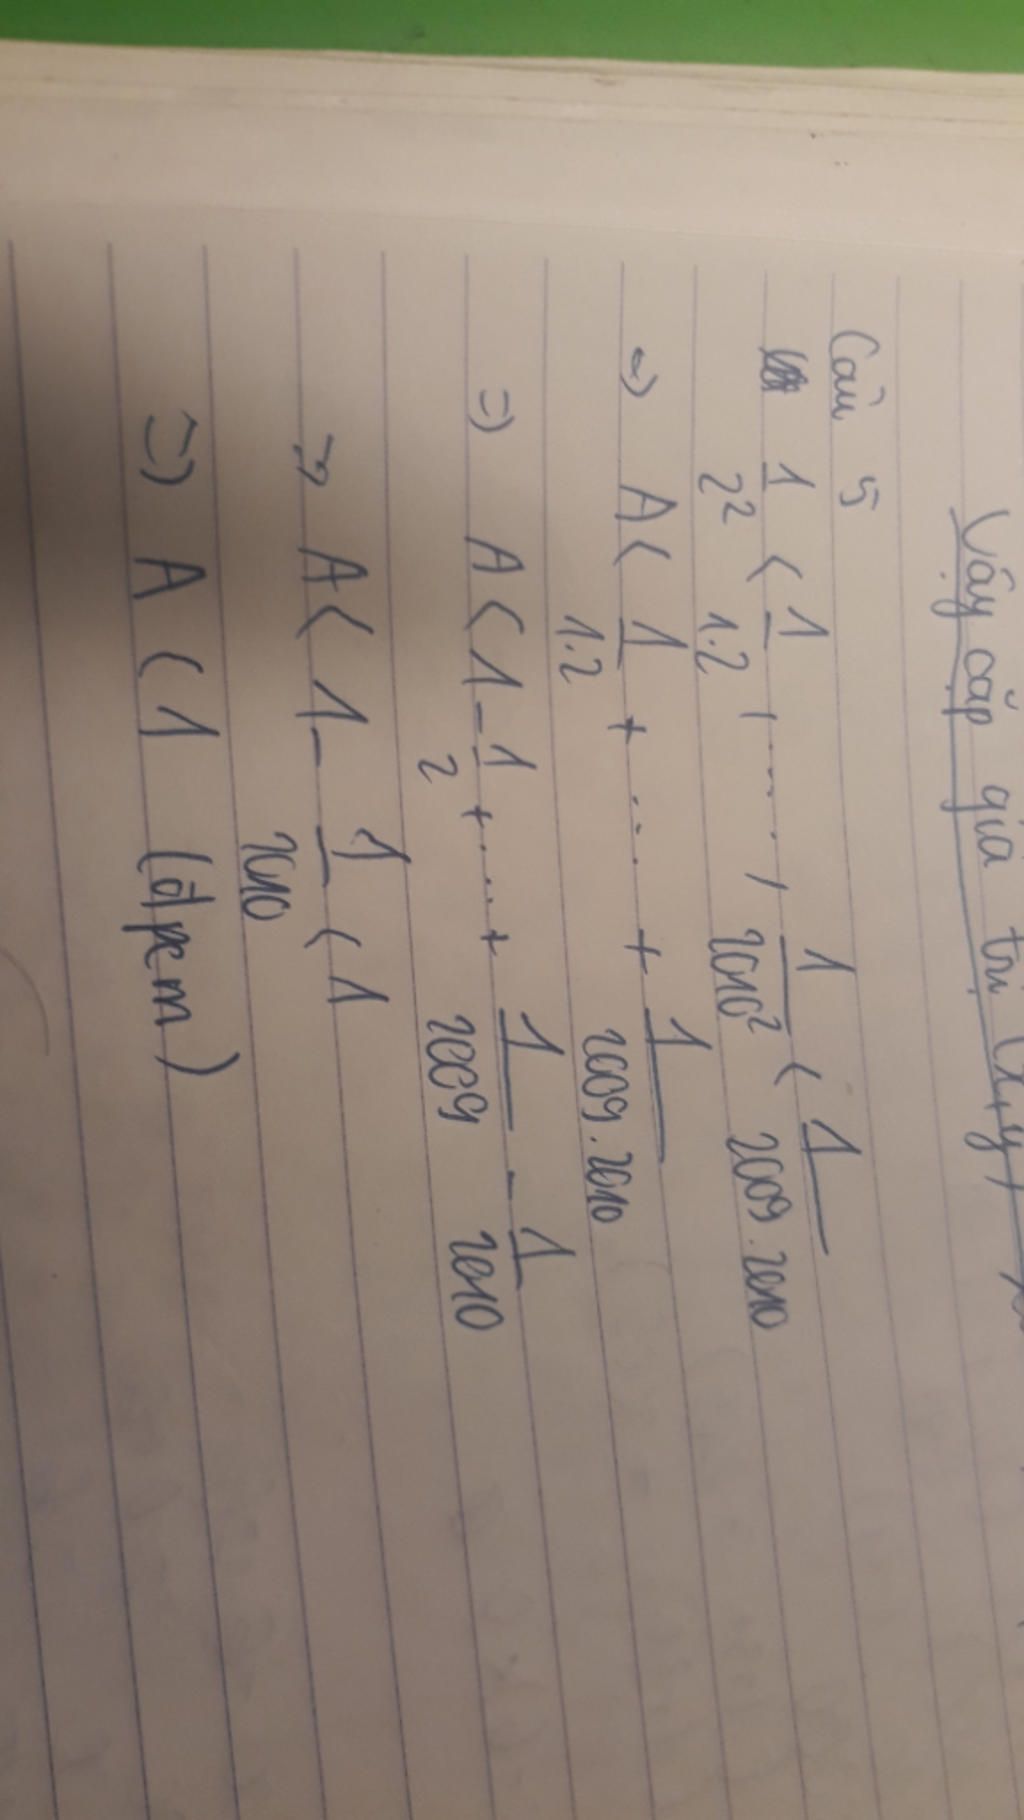 Vậy cặp giá trị (x,y)
Câu 5
1/2² < 1/1.2, ....., 1/2010² < 1/2009.2010
=> A < 1/1.2 + ..... + 1/2009.2010
=> A < 1 - 1/2 + ..... + 1/2009 - 1/2010
=> A < 1 - 1/2010 < 1
=> A < 1 (đpcm)